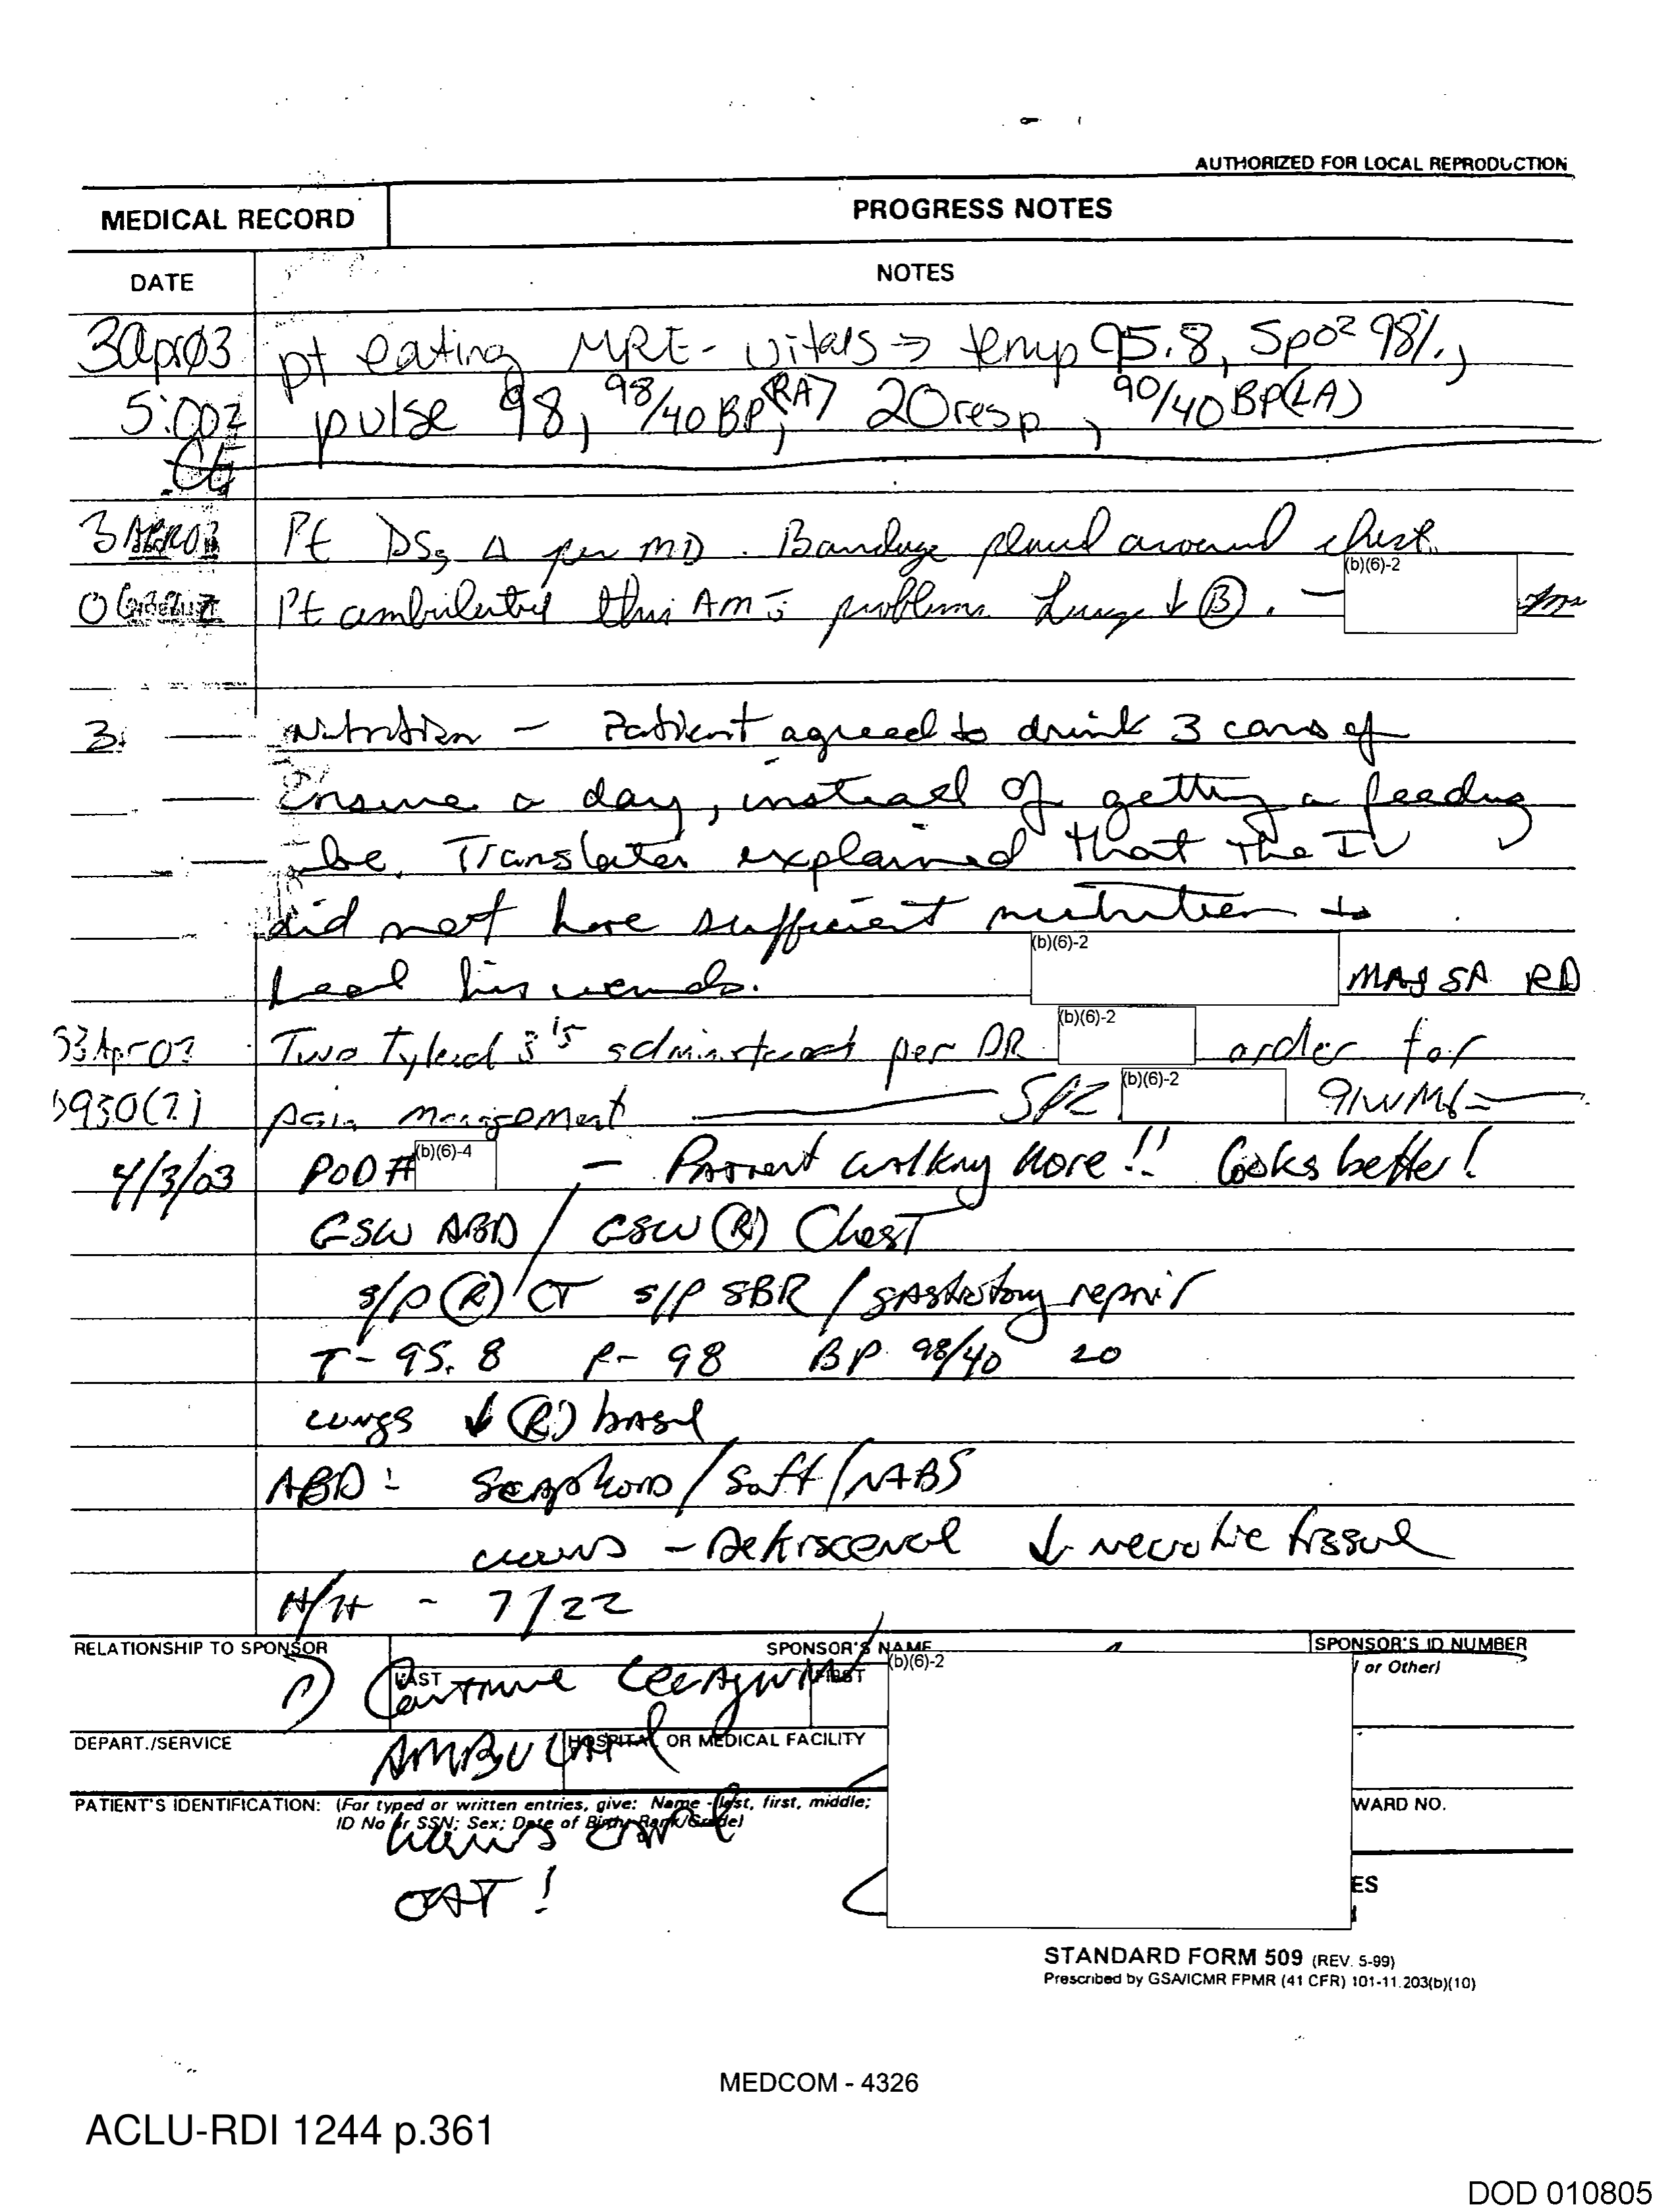 AUTHORIZED FOR LOCAL REPRODUCTION
MEDICAL RECORD
PROGRESS NOTES
DATE
NOTES
3apr03 pt eating MRE - vitals → temp 95.8, Spo² 98%,
5:00z pulse 98, 98/40 BP(RA), 20 resp, 90/40 BP(LA)
3 APR03 Pt DSg Δ per MD. Bandage placed around chest
(b)(6)-2
Pt this AM problems Lungs ↓ Ⓑ. —
3. Nutrition - Patient agreed to drink 3 cans of
Ensure a day, instead of getting a feeding
be. Translator explained that the IV
did not have sufficient nutrition to
heal his wounds. (b)(6)-2 MAJ SP RD
Apr 03 Two Tylenol 3's administered per DR (b)(6)-2 order for
0930(?) pain management — SPC (b)(6)-2 91WM6
4/3/03 POD# (b)(6)-4 - Patient walking more!! Looks better!
GSW ABD / GSW Ⓡ Chest
s/p Ⓡ CT s/p SBR / repair
T- 95.8 P- 98 BP 98/40 20
Lungs ↓ Ⓡ base
ABD: Scaphoid / Soft / NABS
↓ necrotic tissue
H/H - 7/22
RELATIONSHIP TO SPONSOR
SPONSOR'S NAME
SPONSOR'S ID NUMBER
LAST
FIRST
(b)(6)-2
or Other)
1) Continue
DEPART./SERVICE
HOSPITAL OR MEDICAL FACILITY
PATIENT'S IDENTIFICATION: (For typed or written entries, give: Name - last, first, middle;
ID No or SSN; Sex; Date of Birth; Rank/Grade)
WARD NO.
ES
STANDARD FORM 509 (REV. 5-99)
Prescribed by GSA/ICMR FPMR (41 CFR) 101-11.203(b)(10)
MEDCOM - 4326
ACLU-RDI 1244 p.361
DOD 010805